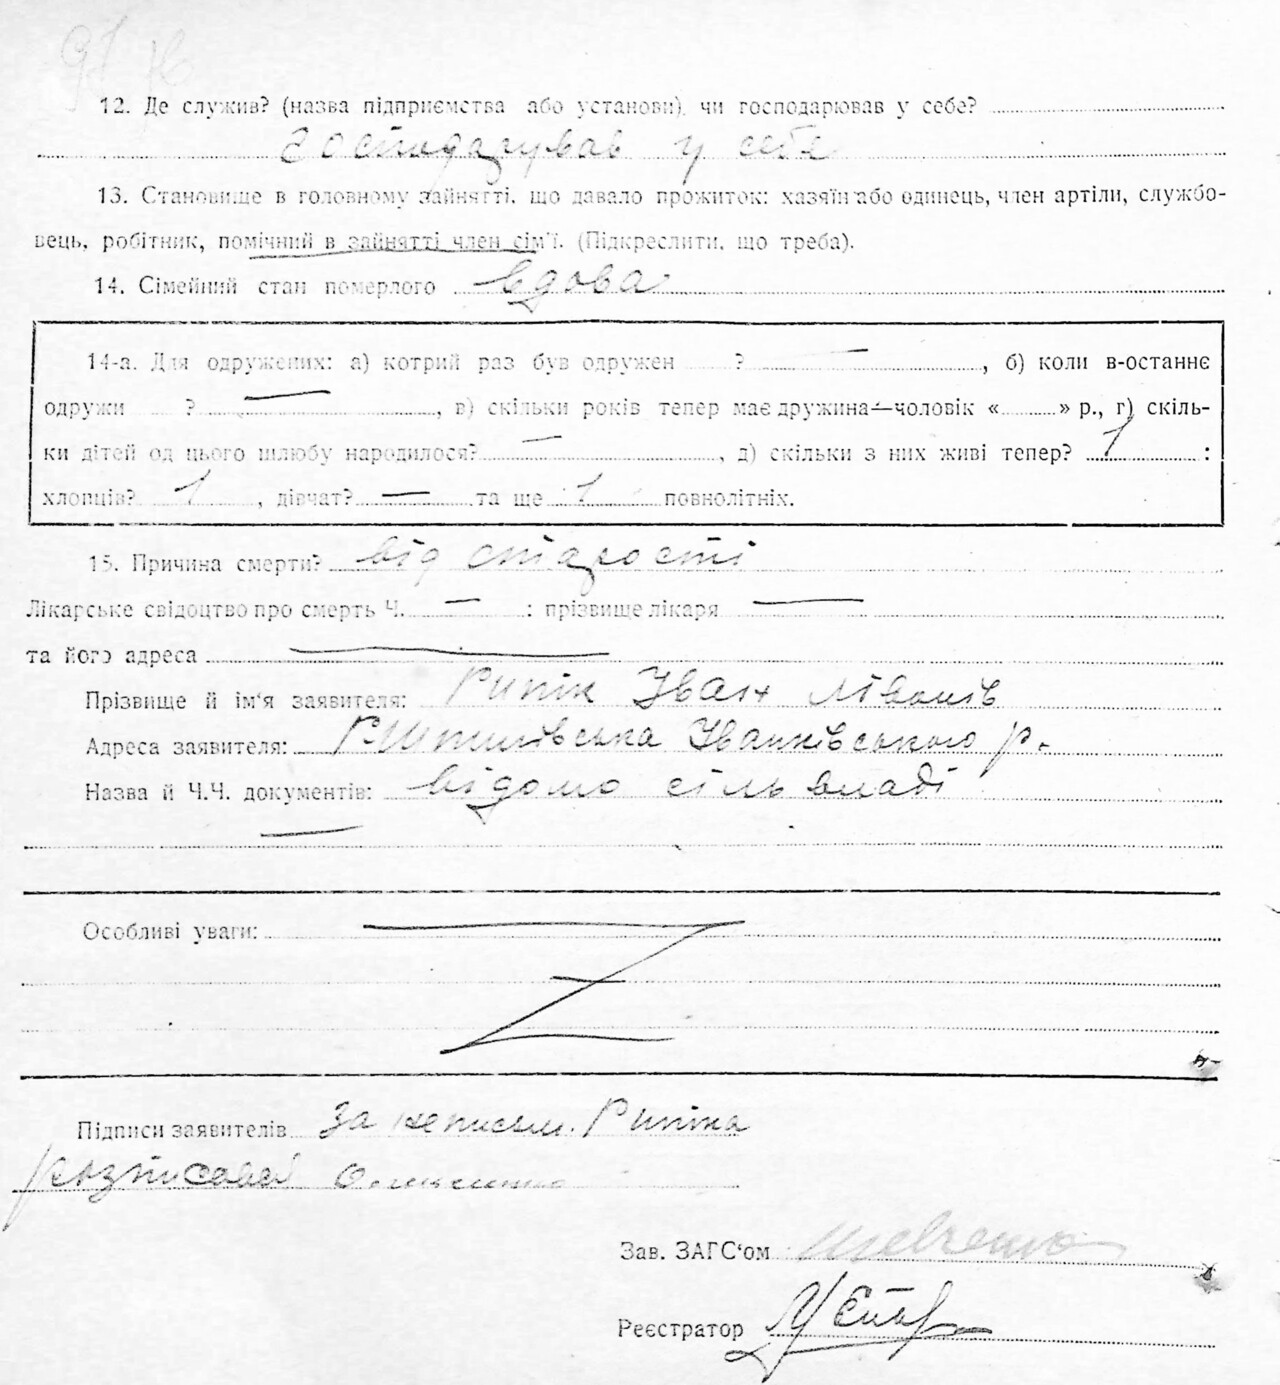 12. Де служив? (назва підприємства або установи) чи господарював у себе?
господарував у себе
13. Становище в головному зайнятті, що давало прожиток: хазяїн або одинець, член артіли, службо-
вець, робітник, помічний в зайнятті член сім'ї. (Підкреслити, що треба).
14. Сімейний стан померлого вдова
14-а. Для одружених: а) котрий раз був одружен ? —, б) коли в-останнє
одружи ? —, в) скільки років тепер має дружина—чоловік « » р., г) скіль-
ки дітей од цього шлюбу народилося? —, д) скільки з них живі тепер? 1 :
хлопців? 1, дівчат? — та ще 1 повнолітніх.
15. Причина смерти? від старости
Лікарське свідоцтво про смерть Ч. — : прізвище лікаря —
та його адреса —
Прізвище й ім'я заявителя: Іван
Адреса заявителя: Іванківського р.
Назва й Ч.Ч. документів: відомо сіль владі
—
Особливі уваги:
Підписи заявителів За неписьм.
розписавсь
Зав. ЗАГС'ом
Реєстратор